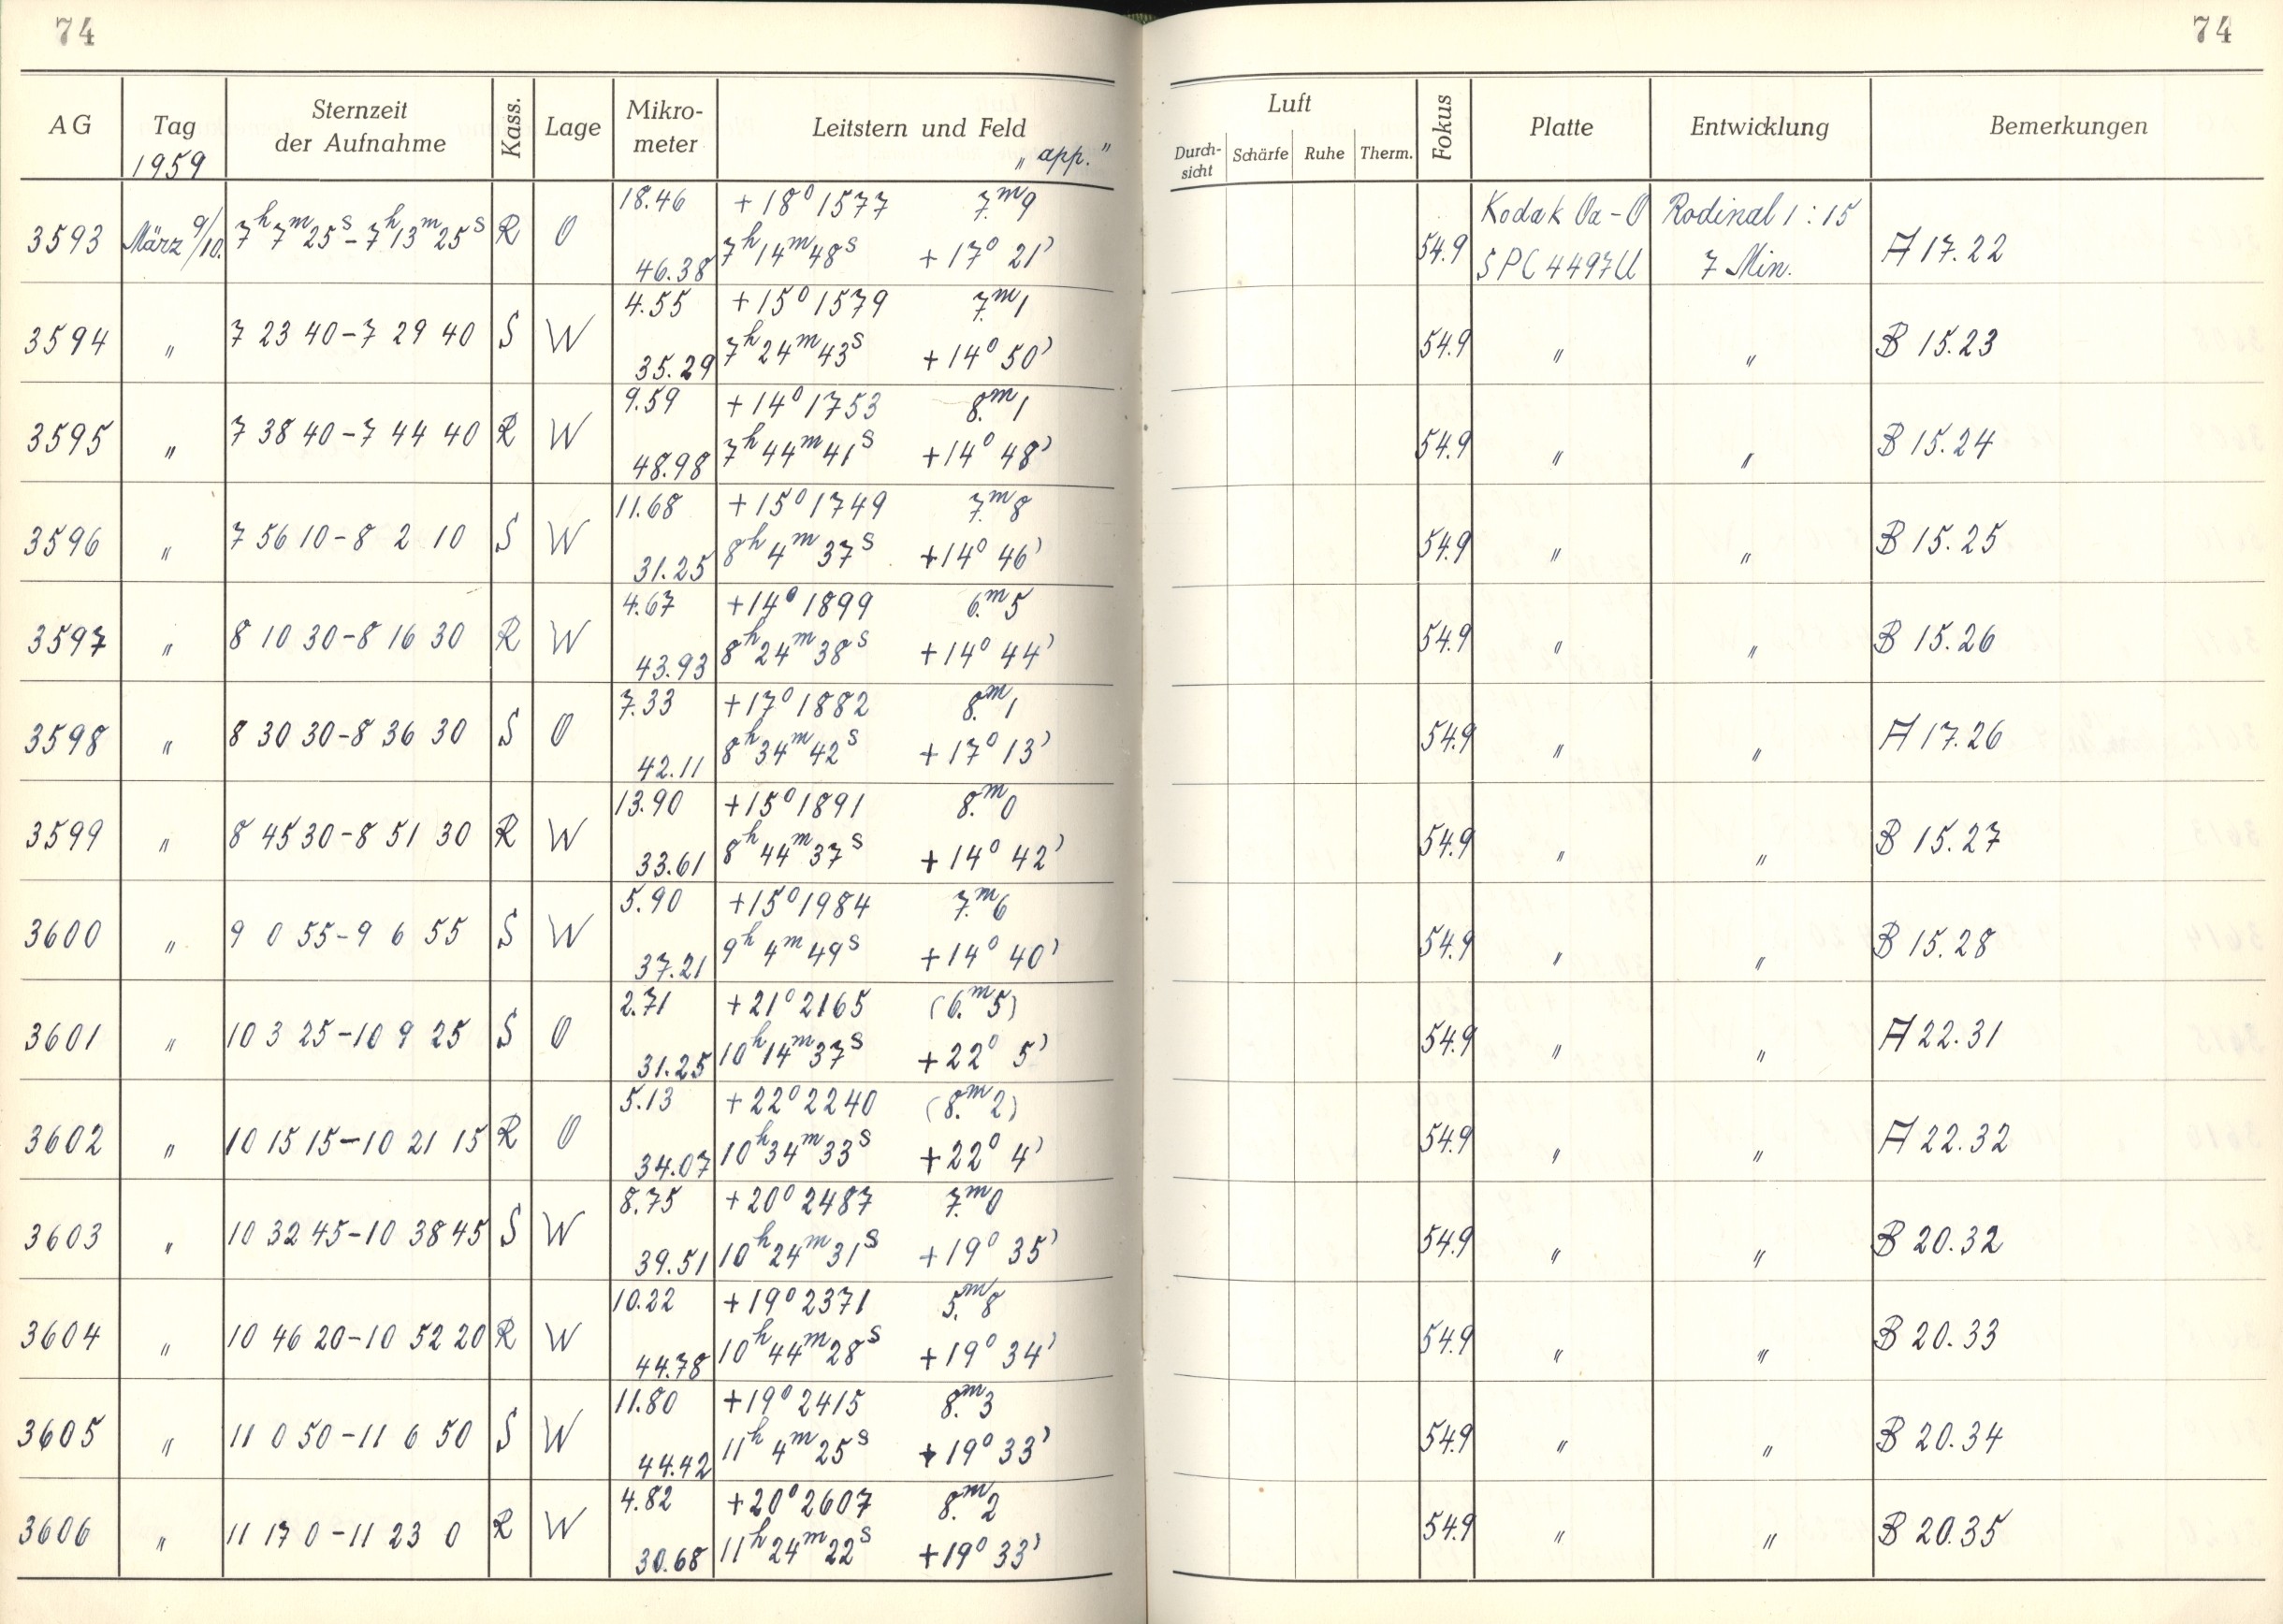 74
74
AG Tag 1959 Sternzeit der Aufnahme Kass. Lage Mikro-meter Leitstern und Feld „app."
Luft Durch-sicht Schärfe Ruhe Therm. Fokus Platte Entwicklung Bemerkungen
18.46 +18° 1577 7.m9 Kodak Oa-O Rodinal 1:15
3593 März 9/10. 7h 7m 25s - 7h 13m 25s R O 46.38 7h 14m 48s +17° 21' 54.9 SPC 4497U 7 Min. A 17.22
4.55 +15° 1579 7.m1
3594 " 7 23 40 - 7 29 40 S W 35.29 7h 24m 43s +14° 50' 54.9 " " B 15.23
9.59 +14° 1753 8.m1
3595 " 7 38 40 - 7 44 40 R W 48.98 7h 44m 41s +14° 48' 54.9 " " B 15.24
11.68 +15° 1749 7.m8
3596 " 7 56 10 - 8 2 10 S W 31.25 8h 4m 37s +14° 46' 54.9 " " B 15.25
4.67 +14° 1899 6.m5
3597 " 8 10 30 - 8 16 30 R W 43.93 8h 24m 38s +14° 44' 54.9 " " B 15.26
7.33 +17° 1882 8.m1
3598 " 8 30 30 - 8 36 30 S O 42.11 8h 34m 42s +17° 13' 54.9 " " A 17.26
13.90 +15° 1891 8.m0
3599 " 8 45 30 - 8 51 30 R W 33.61 8h 44m 37s +14° 42' 54.9 " " B 15.27
5.90 +15° 1984 7.m6
3600 " 9 0 55 - 9 6 55 S W 37.21 9h 4m 49s +14° 40' 54.9 " " B 15.28
2.71 +21° 2165 (6.m5)
3601 " 10 3 25 - 10 9 25 S O 31.25 10h 14m 37s +22° 5' 54.9 " " A 22.31
5.13 +22° 2240 (8.m2)
3602 " 10 15 15 - 10 21 15 R O 34.07 10h 34m 33s +22° 4' 54.9 " " A 22.32
8.75 +20° 2487 7.m0
3603 " 10 32 45 - 10 38 45 S W 39.51 10h 24m 31s +19° 35' 54.9 " " B 20.32
10.22 +19° 2371 5.m8
3604 " 10 46 20 - 10 52 20 R W 44.78 10h 44m 28s +19° 34' 54.9 " " B 20.33
11.80 +19° 2415 8.m3
3605 " 11 0 50 - 11 6 50 S W 44.42 11h 4m 25s +19° 33' 54.9 " " B 20.34
4.82 +20° 2607 8.m2
3606 " 11 17 0 - 11 23 0 R W 30.68 11h 24m 22s +19° 33' 54.9 " " B 20.35